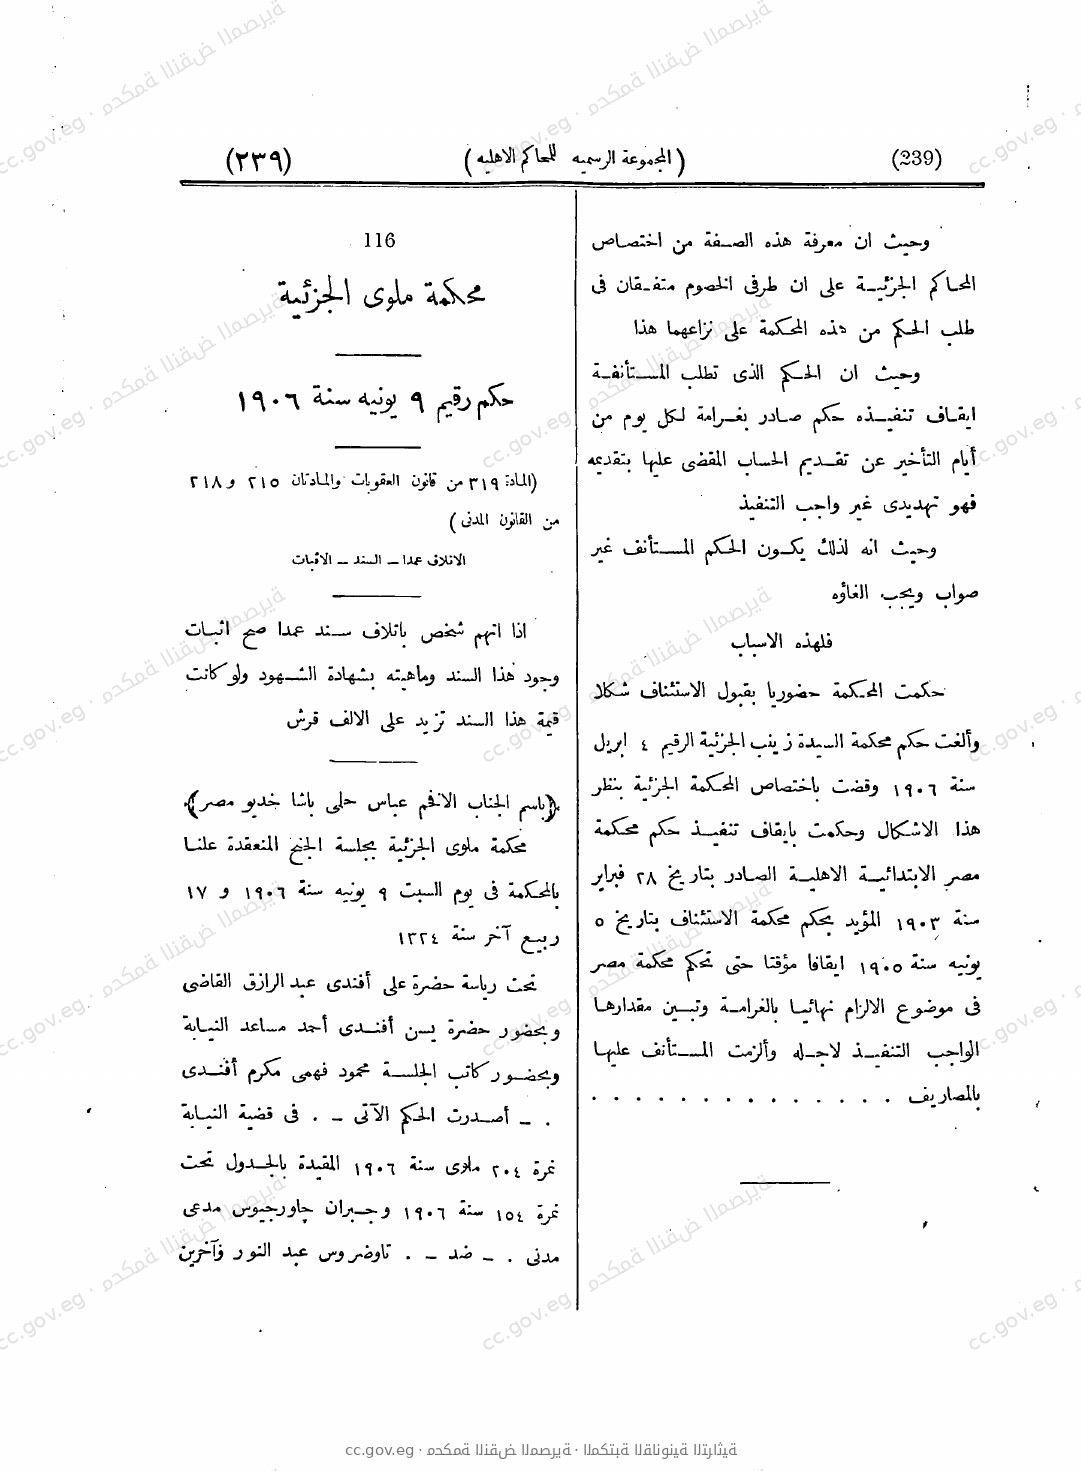 (239) (المجموعة الرسميه للمحاكم الاهليه) (٢٣٩)
وحيث ان معرفة هذه الصفة من اختصاص
المحاكم الجزئية على ان طرفى الخصوم متفقان فى
طلب الحكم من هذه المحكمة على نزاعهما هذا
وحيث ان الحكم الذى تطلب المستأنفة
ايقاف تنفيذه حكم صادر بغرامة لكل يوم من
أيام التأخير عن تقديم الحساب المقضى عليها بتقديمه
فهو تهديدى غير واجب التنفيذ
وحيث انه لذلك يكون الحكم المستأنف غير
صواب ويجب الغاؤه
فلهذه الاسباب
حكمت المحكمة حضوريا بقبول الاستئناف شكلا
وألغت حكم محكمة السيدة زينب الجزئية الرقيم ٤ ابريل
سنة ١٩٠٦ وقضت باختصاص المحكمة الجزئية بنظر
هذا الاشكال وحكمت بايقاف تنفيذ حكم محكمة
مصر الابتدائية الاهلية الصادر بتاريخ ٢٨ فبراير
سنة ١٩٠٣ المؤيد بحكم محكمة الاستئناف بتاريخ ٥
يونيه سنة ١٩٠٥ ايقافا مؤقتا حتى تحكم محكمة مصر
فى موضوع الالزام نهائيا بالغرامة وتبين مقدارها
الواجب التنفيذ لاجله وألزمت المستأنف عليها
بالمصاريف . . . . . . . . . . . . . .
116
محكمة ملوى الجزئية
حكم رقيم ٩ يونيه سنة ١٩٠٦
(المادة ٣١٩ من قانون العقوبات والمادتان ٢١٥ و ٢١٨
من القانون المدنى)
الاتلاف عمدا ــ السند ــ الاثبات
اذا اتهم شخص باتلاف سند عمدا صح اثبات
وجود هذا السند وماهيته بشهادة الشهود ولو كانت
قيمة هذا السند تزيد على الالف قرش
(باسم الجناب الافخم عباس حلمى باشا خديو مصر)
محكمة ملوى الجزئية بجلسة الجنح المنعقدة علنا
بالمحكمة فى يوم السبت ٩ يونيه سنة ١٩٠٦ و ١٧
ربيع آخر سنة ١٣٢٤
تحت رياسة حضرة على أفندى عبد الرازق القاضى
وبحضور حضرة يسن أفندى أحمد مساعد النيابة
وبحضور كاتب الجلسة محمود فهمى مكرم أفندى
. ــ أصدرت الحكم الآتى ــ . فى قضية النيابة
نمرة ٢٠٤ ملوى سنة ١٩٠٦ المقيدة بالجدول تحت
نمرة ١٥٤ سنة ١٩٠٦ وجبران جاورجيوس مدعى
مدنى . ــ ضد ــ . تاوضروس عبد النور وآخرين
cc.gov.eg · محكمة النقض المصرية · المكتبة القانونية التراثية